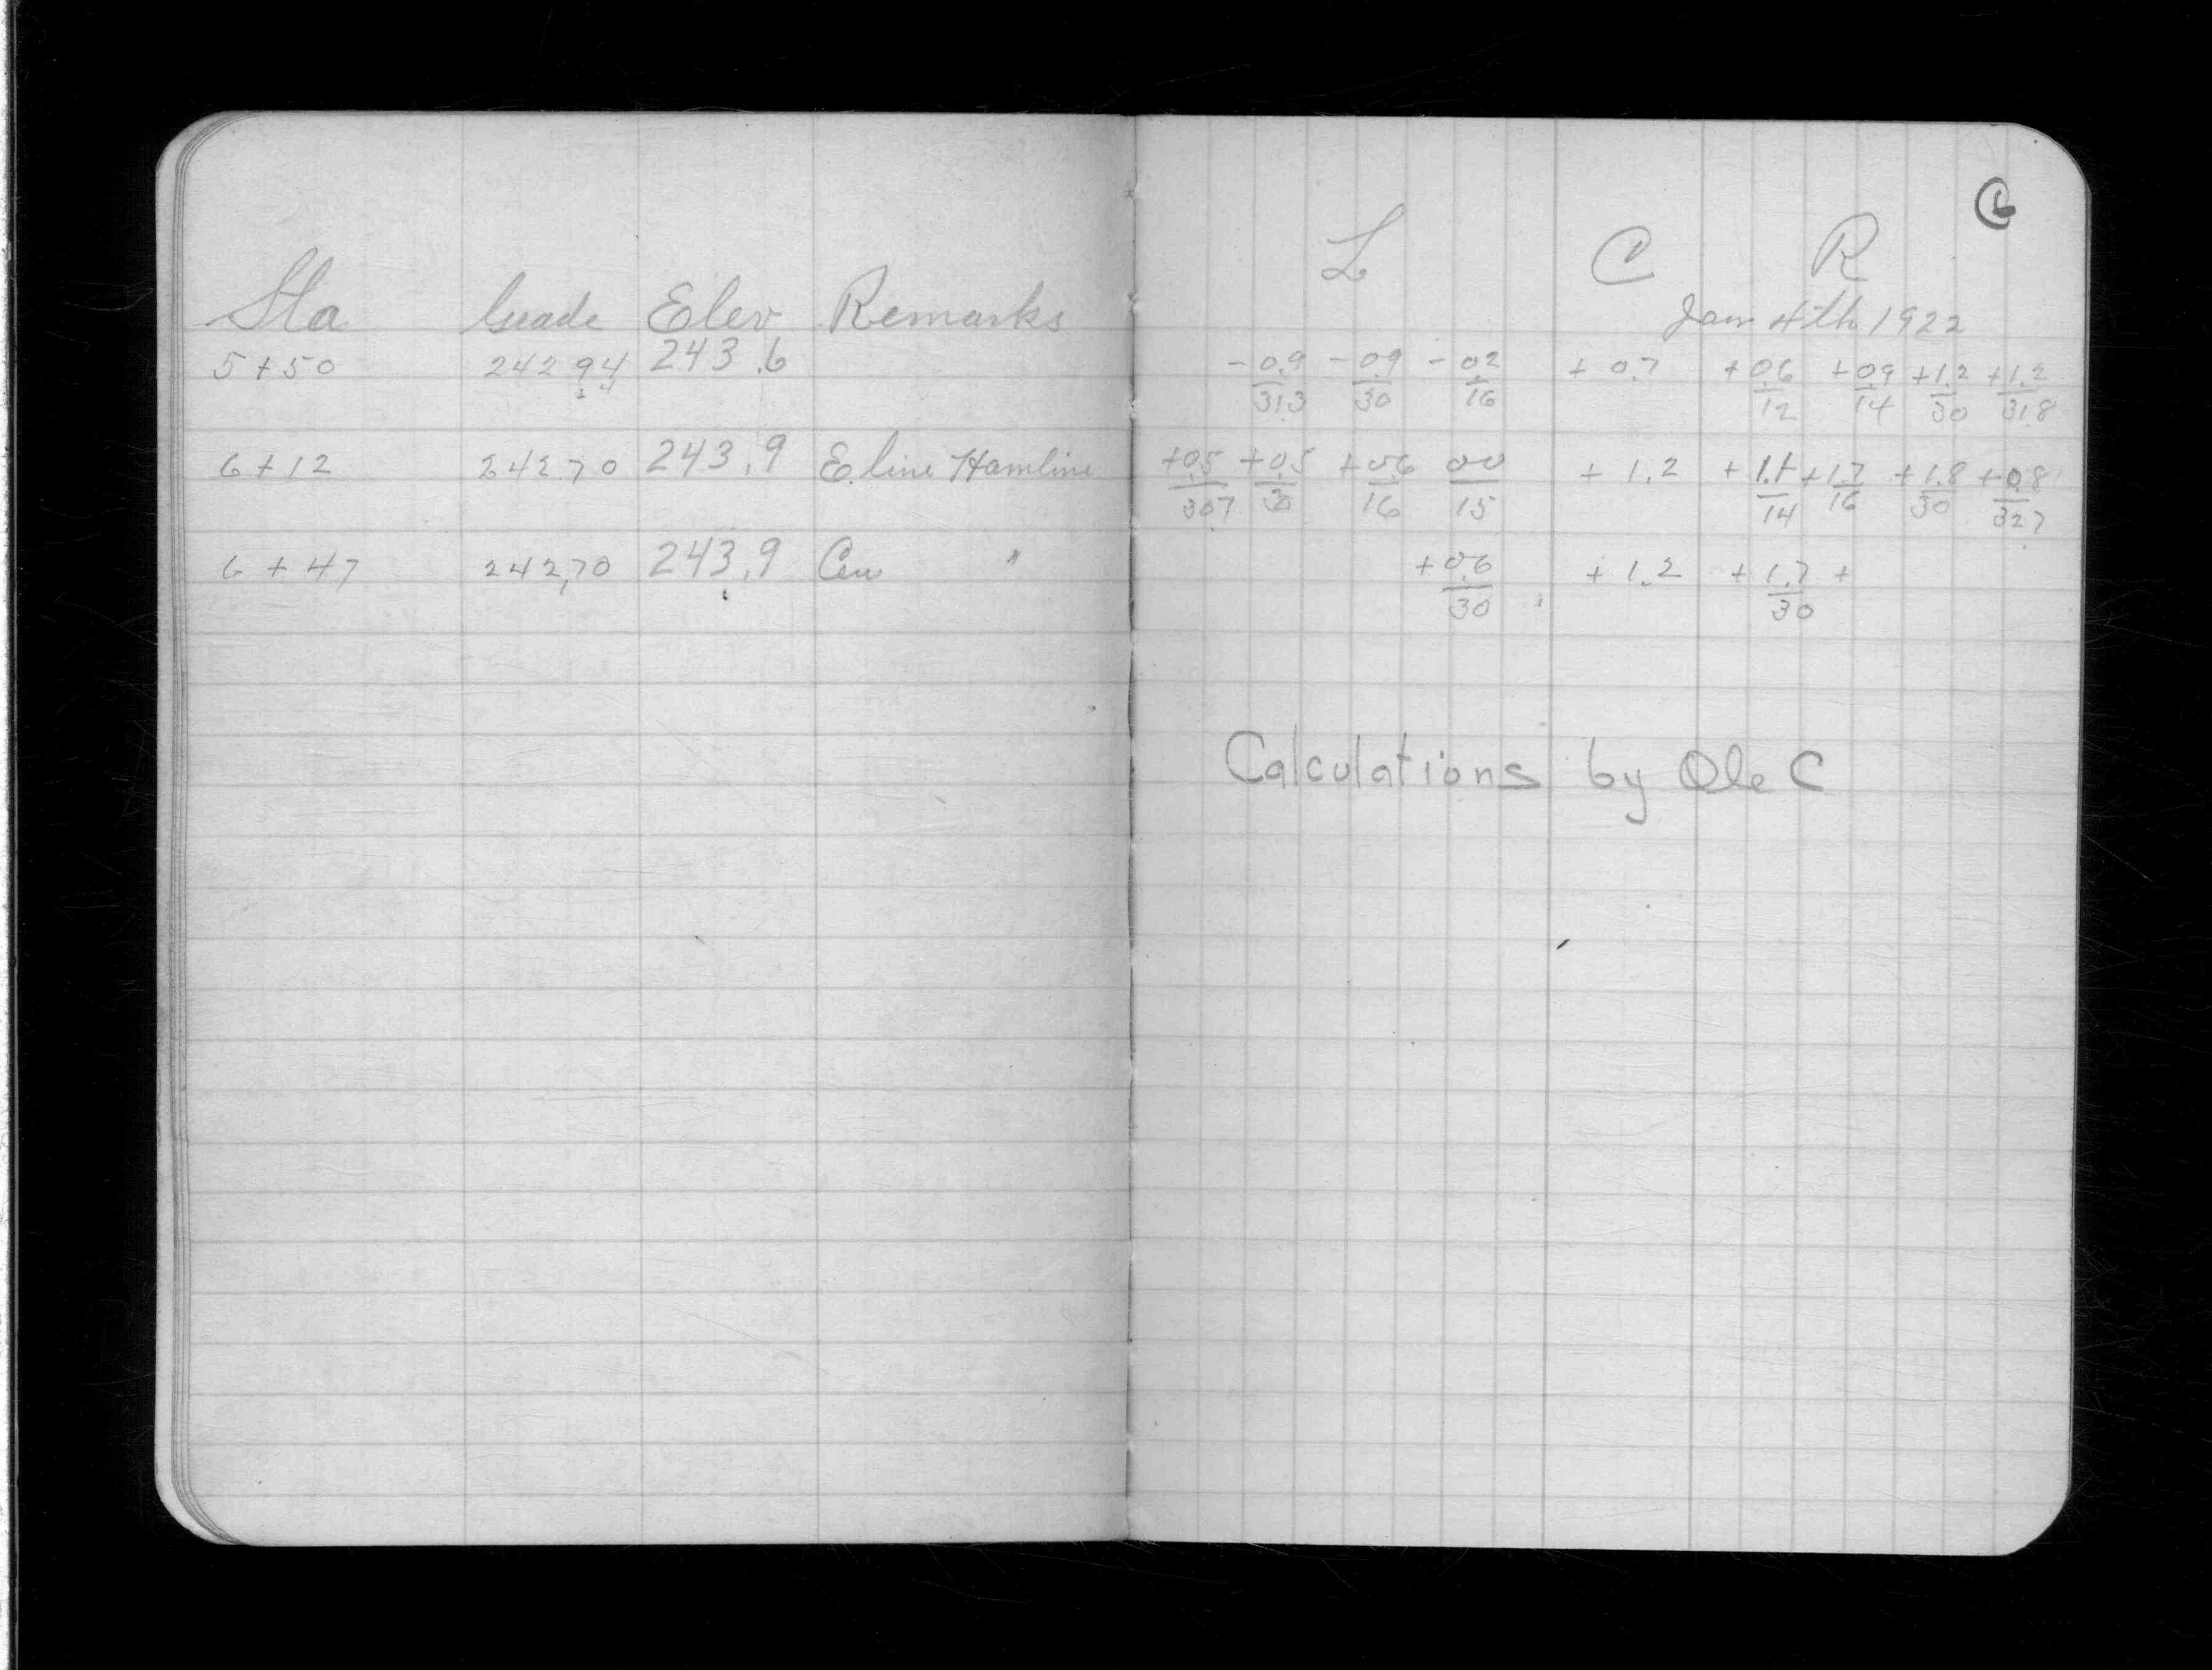 Sta Grade Elev Remarks
5+50 242.94 243.6
6+12 242.70 243.9 E. line Hamline
6+47 242.70 243.9 Cen "
6
L C R
Jan 4th 1922
-0.9/31.3 -0.9/30 -0.2/16 +0.7 +0.6/12 +0.9/14 +1.2/30 +1.2/31.8
+0.5/30.7 +0.5/30 +0.6/16 00/15 +1.2 +1.1/14 +1.7/16 +1.8/30 +0.8/32.7
+0.6/30 +1.2 +1.7/30 +
Calculations by Ole C